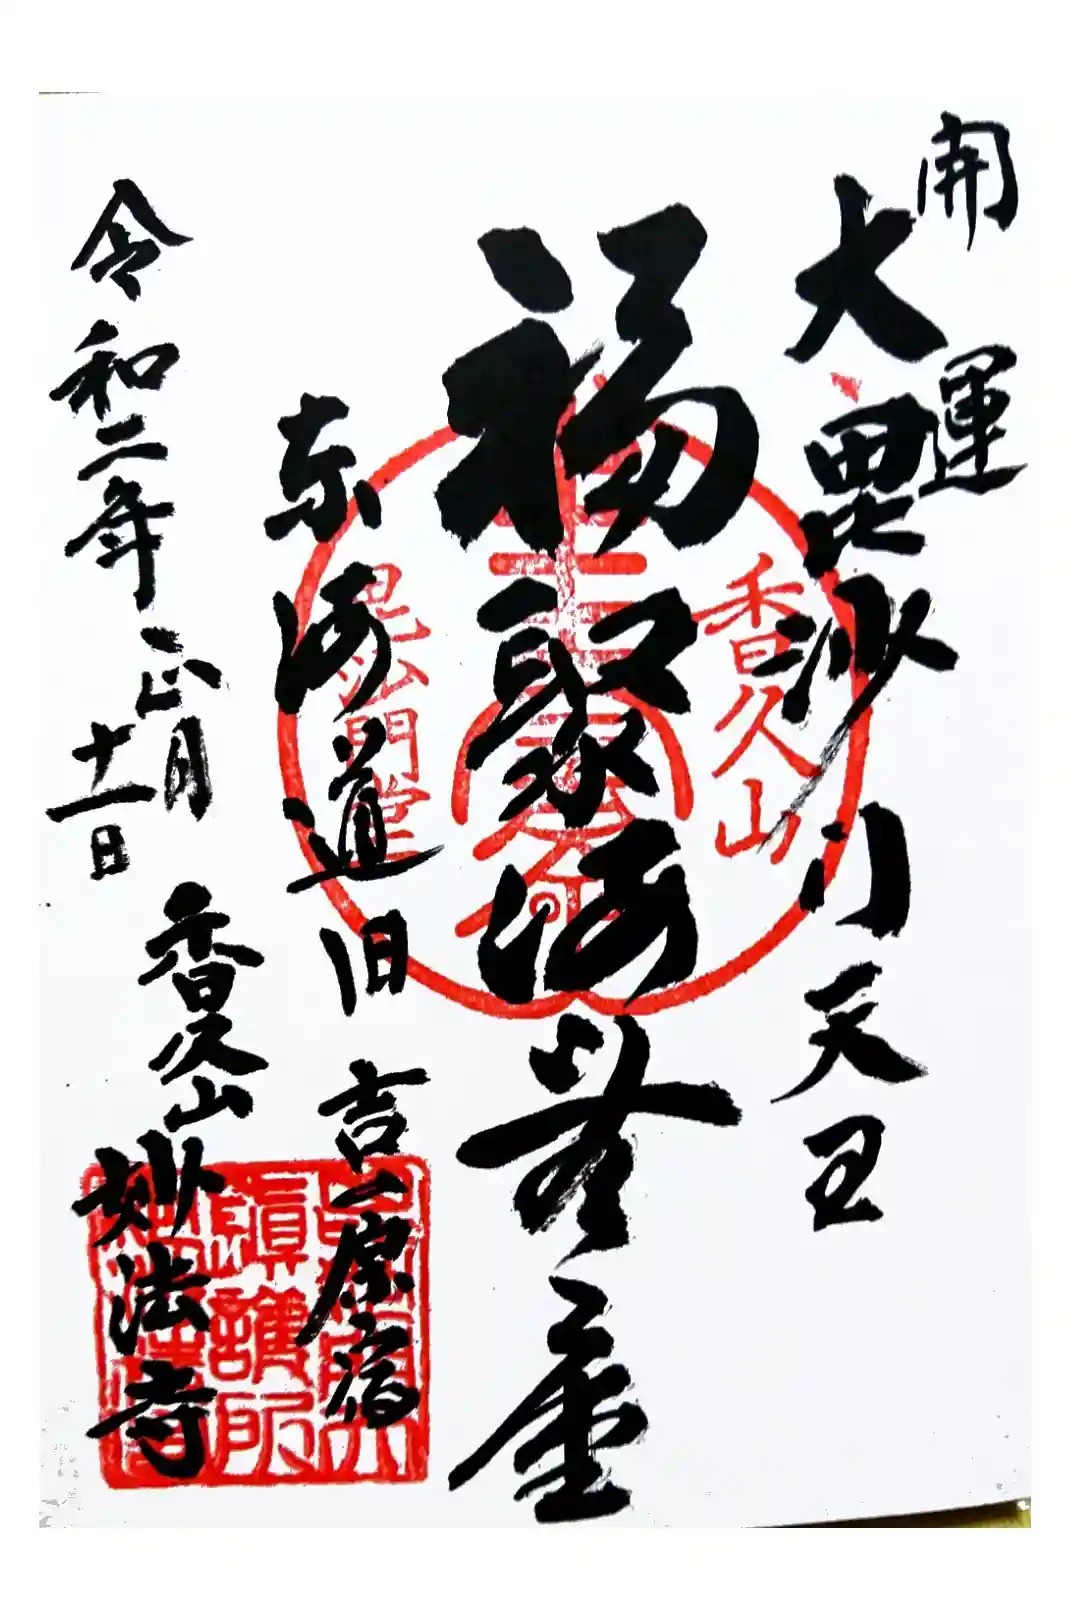 開運
大毘沙門天王
福聚海無量
東海道旧吉原宿
香久山妙法寺
令和二年正月
十一日
香久山
毘沙門堂
鎮護所